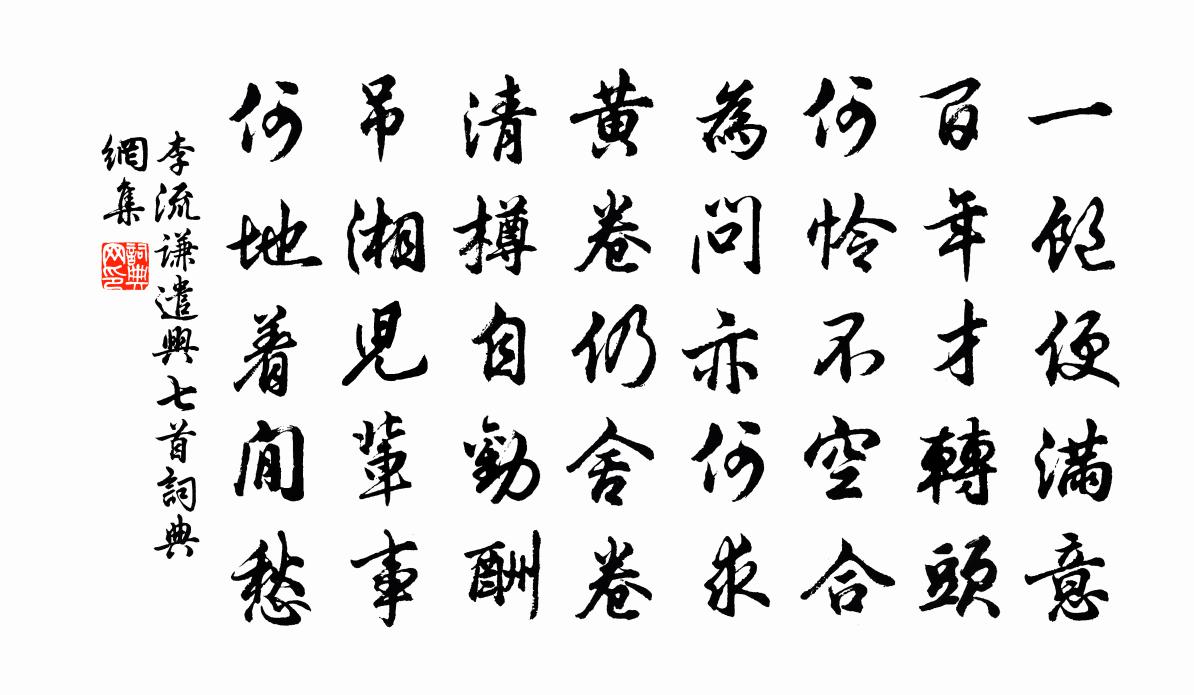 一飽便滿意
百年才轉頭
何憐不空合
為問亦何求
黃卷仍舍卷
清樽自勸酬
吊湘兒輩事
何地着閒愁
李流謙遣興七首詞典
網集
詞典
网印